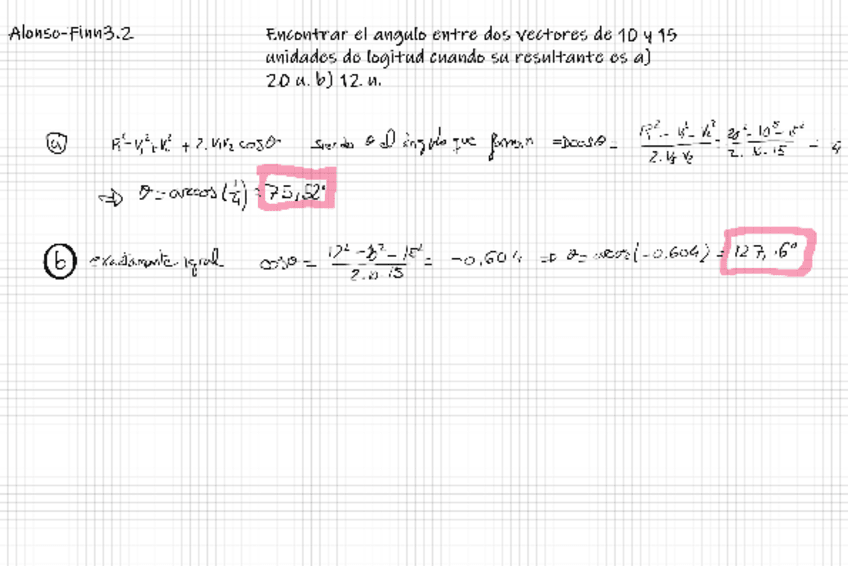 Alonso-Finn3.2
Encontrar el angulo entre dos vectores de 10 y 15
unidades de logitud cuando su resultante es a)
20 u. b) 12. u.
a) R²=V₁²+V₂² + 2.V₁V₂ cosθ siendo θ el ángulo que forman =>cosθ= (R²-V₁²-V₂²)/(2.V₁V₂) = (20²-10²-15²)/(2.10.15) =
=> θ=arccos(1/4)=75,52°
b) exactamente igual cosθ= (12²-10²-15²)/(2.10.15) = -0.604 => θ=arcos(-0.604)=127,16°